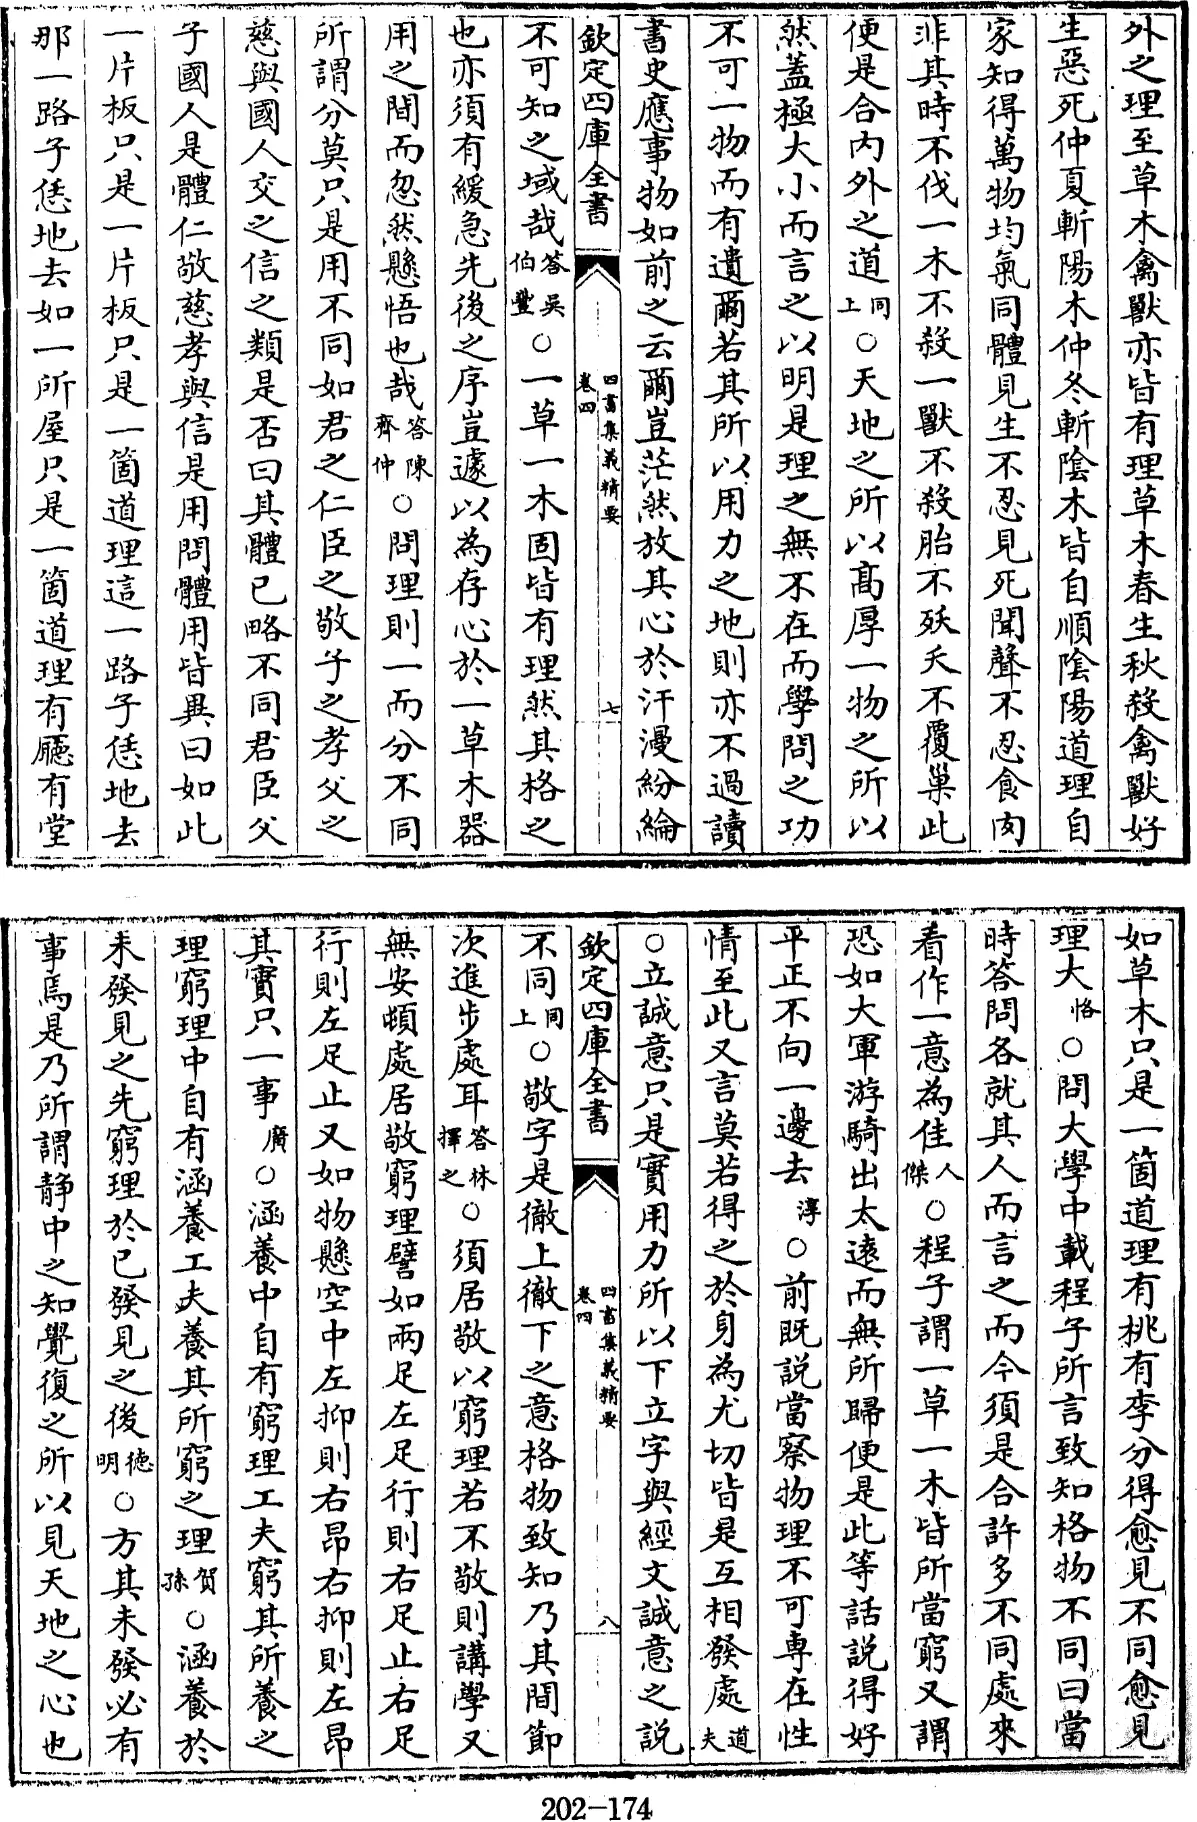 外之理至草木禽獸亦皆有理草木春生秋殺禽獸好
生惡死仲夏斬陽木仲冬斬陰木皆自順陰陽道理自
家知得萬物均氣同體見生不忍見死聞聲不忍食肉
非其時不伐一木不殺一獸不殺胎不殀夭不覆巢此
便是合内外之道同上○天地之所以髙厚一物之所以
然蓋極大小而言之以明是理之無不在而學問之功
不可一物而有遺爾若其所以用力之地則亦不過讀
書史應事物如前之云爾豈茫然放其心於汗漫紛綸
欽定四庫全書
四書集義精要
卷四
七
不可知之域哉答吳伯豐○一草一木固皆有理然其格之
也亦須有緩急先後之序豈遽以為存心於一草木器
用之間而忽然懸悟也哉答陳齊仲○問理則一而分不同
所謂分莫只是用不同如君之仁臣之敬子之孝父之
慈與國人交之信之類是否曰其體已略不同君臣父
子國人是體仁敬慈孝與信是用問體用皆異曰如此
一片板只是一片板只是一箇道理這一路子恁地去
那一路子恁地去如一所屋只是一箇道理有廳有堂
如草木只是一箇道理有桃有李分得愈見不同愈見
理大恪○問大學中載程子所言致知格物不同曰當
時答問各就其人而言之而今須是合許多不同處來
看作一意為佳人傑○程子謂一草一木皆所當窮又謂
恐如大軍游騎出太遠而無所歸便是此等話説得好
平正不向一邊去淳○前既説當察物理不可専在性
情至此又言莫若得之於身為尤切皆是互相發處道夫
○立誠意只是實用力所以下立字與經文誠意之説
欽定四庫全書
四書集義精要
卷四
八
不同同上○敬字是徹上徹下之意格物致知乃其間節
次進步處耳答林擇之○須居敬以窮理若不敬則講學又
無安頓處居敬窮理譬如兩足左足行則右足止右足
行則左足止又如物懸空中左抑則右昂右抑則左昂
其實只一事廣○涵養中自有窮理工夫窮其所養之
理窮理中自有涵養工夫養其所窮之理賀孫○涵養於
未發見之先窮理於已發見之後德明○方其未發必有
事焉是乃所謂静中之知覺復之所以見天地之心也
202-174